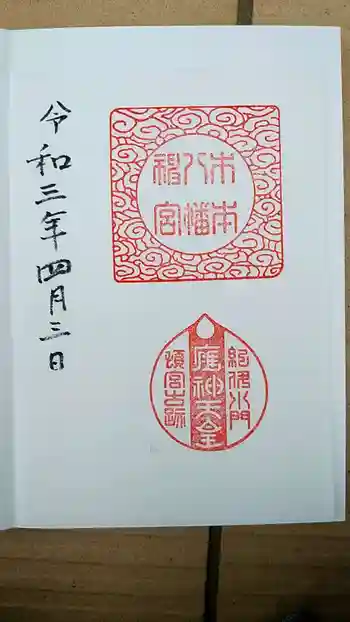 木本
八幡
宮
紀伊水門
應神天皇
頓宮古跡
令和三年四月三日